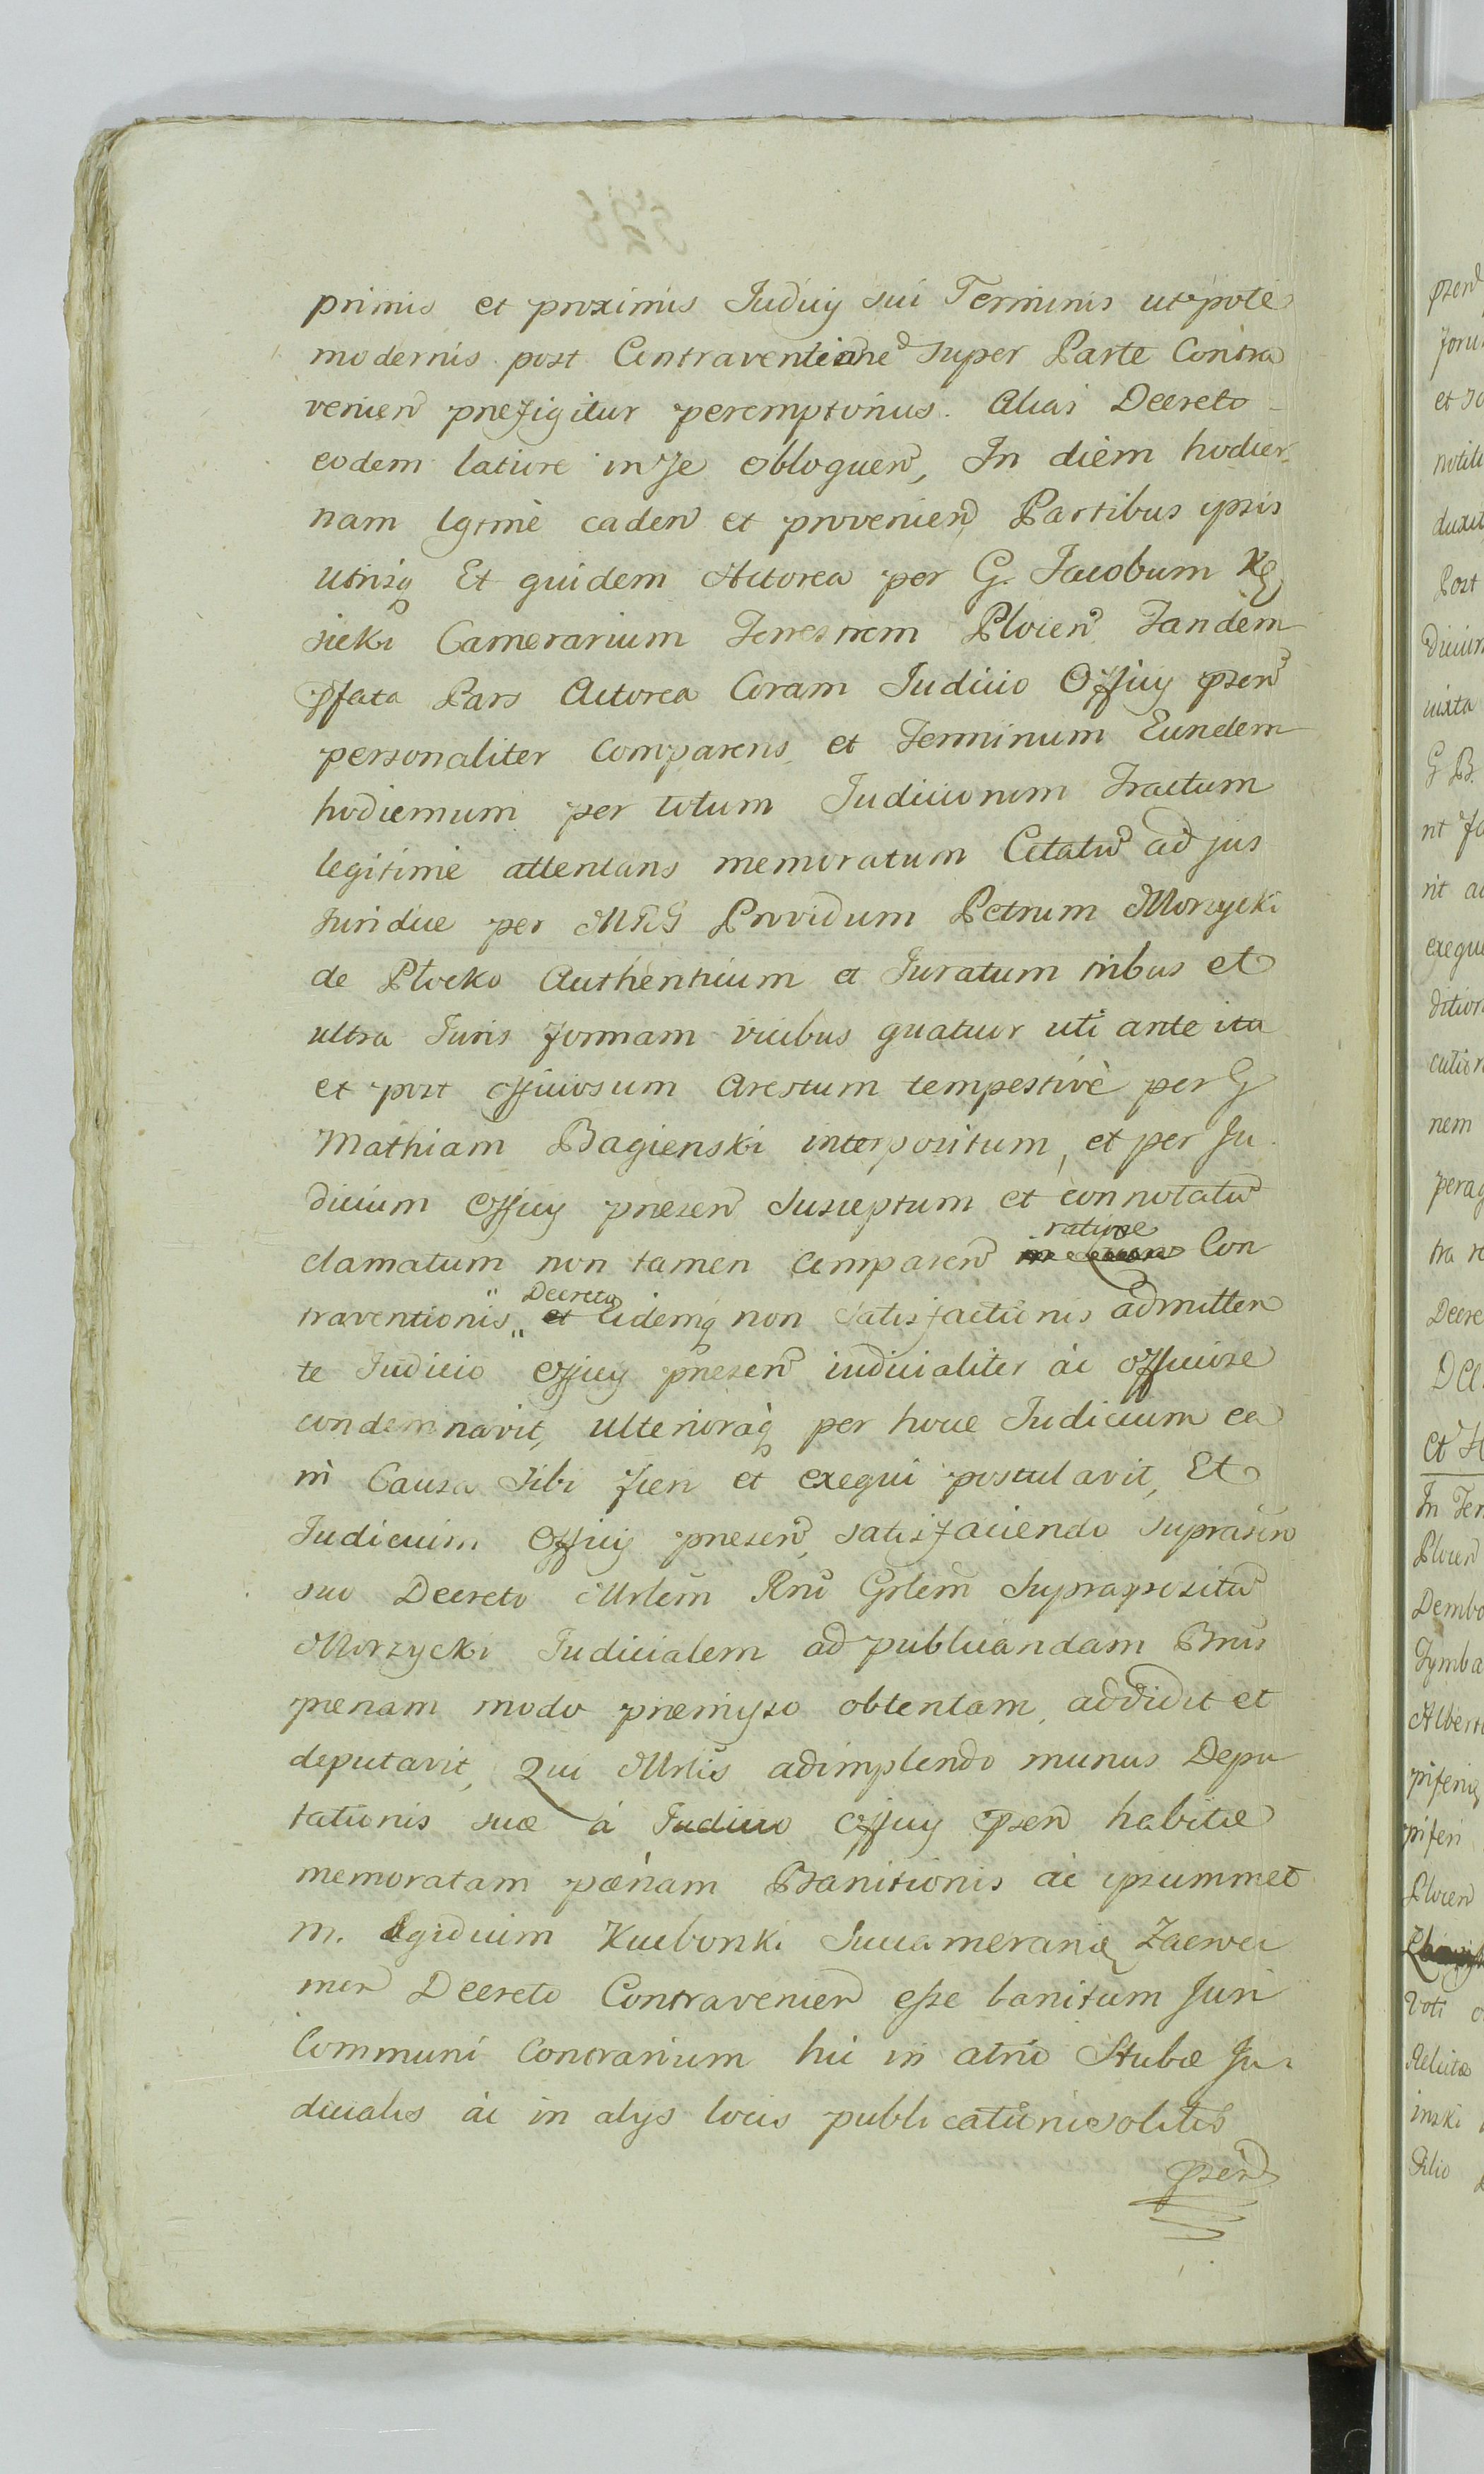 primis et proximis Judicij sui Terminis utpote
modernis post Contraventione super Parte Contra
venien prefigitur peremptorius. Alias Decreto
eodem latiore in se obloquen, In diem hodier
nam lgtmè caden et provenien Partibus ipsis
utrisq Et quidem Actorea per G. Jacobum Kę
sicki Camerarium Terrestrem Plocien Tandem
pfata Pars Actorea Coram Judicio Officij psen
personaliter Comparens et Terminum Eundem
hodiernum per totum Judiciorum Tractum
legitimè attentans memoratum Citatu ad jus
Juridice per MRG Providum Petrum Morzycki
de Plocko Authenticum et Juratum tribus et
ultra Juris formam vicibus quatuor uti ante ita
et post officiosum Arestum tempestivè per G
Mathiam Bagienski interpositum, et per Ju
dicium Officij presen Susceptum et connotatu
clamatum non tamen Comparen ratione Con
traventionis Decreto Eidemq non Satisfactionis admitten
te Judicio Officij presen iudicialiter ac officiose
condemnavit, ulterioraq per hocce Judicium ea
in Causa Sibi fieri et exequi postulavit, Et
Judicium Officij presen satisfaciendo suprascrip
suo Decreto Mrlem Rni Grlem Supraposit
Morzycki Judicialem ad publicandam Bnis
penam modo premisso obtentam addidit et
deputavit, Qui Mrlis adimplendo munus Depu
tationis suæ à Judicio Officij psen habitæ
memoratam pænam Banitionis ac ipsummet
m. Egidium Kucborski Succameranię Zaewer
men Decreto Contravenien esse banitum Juri
Communi Contrarium hic in atrio Stubæ Ju
dicialis ac in alijs locis publicationi solitis
psen